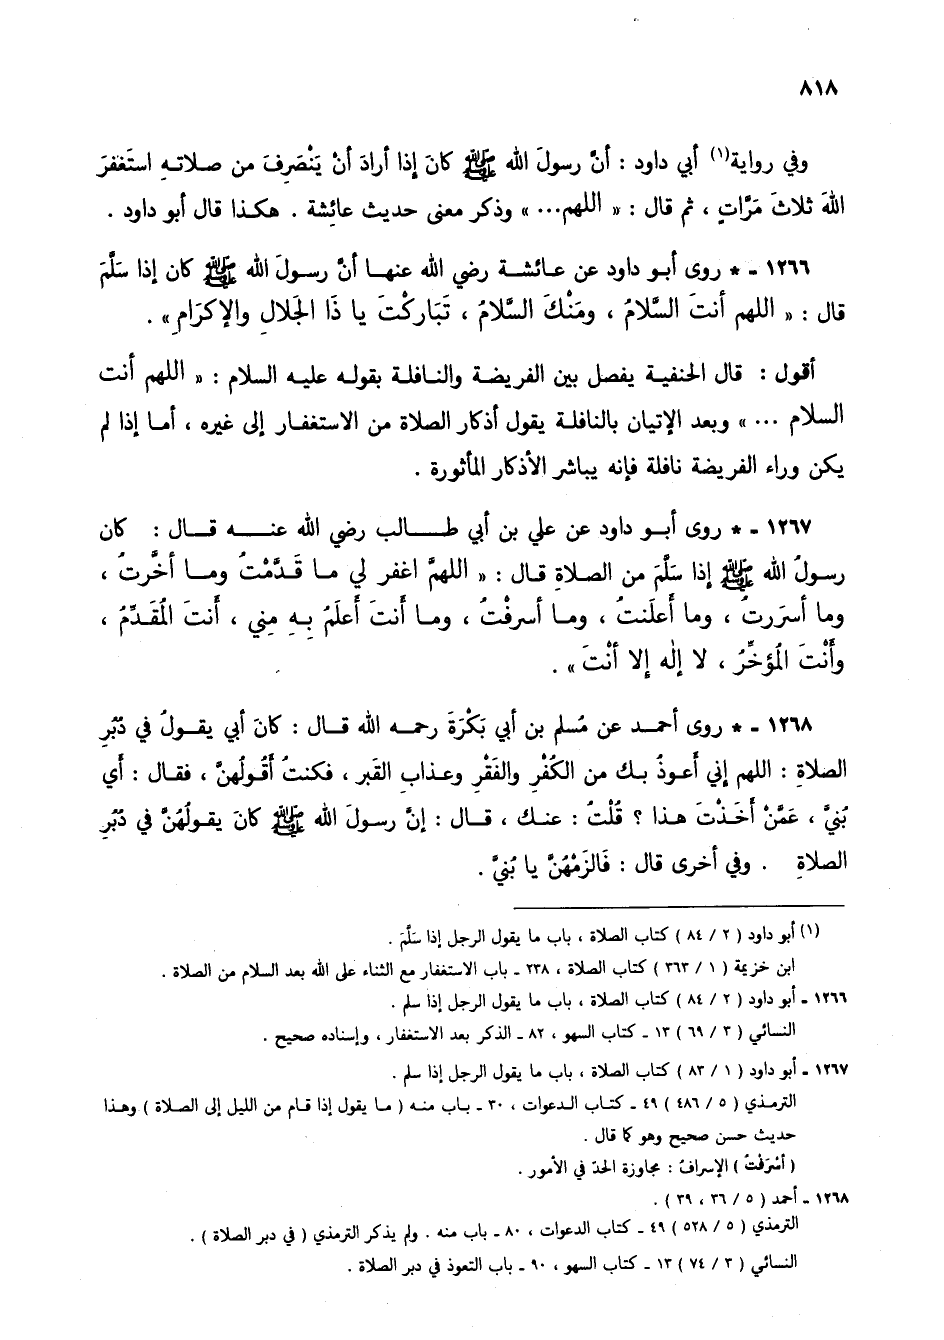 ٨١٨
وفي رواية(١) أبي داود : أنَّ رسولَ الله ﷺ كانَ إذا أرادَ أنْ يَنْصَرِفَ من صلاتهِ استَغفرَ
اللهَ ثلاثَ مَرَّاتٍ ، ثم قال : « اللهم... » وذكر معنى حديث عائشة . هكذا قال أبو داود .
١٢٦٦ - * روى أبو داود عن عائشة رضي الله عنها أنَّ رسولَ الله ﷺ كان إذا سَلَّمَ
قال : « اللهم أنتَ السَّلامُ ، ومَنْكَ السَّلامُ ، تَبَاركْتَ يا ذَا الجَلالِ والإكرَامِ » .
أقول : قال الحنفية يفصل بين الفريضة والنافلة بقوله عليه السلام : « اللهم أنت
السلام ... » وبعد الإتيان بالنافلة يقول أذكار الصلاة من الاستغفار إلى غيره ، أما إذا لم
يكن وراء الفريضة نافلة فإنه يباشر الأذكار المأثورة .
١٢٦٧ - * روى أبو داود عن علي بن أبي طالب رضي الله عنه قال : كان
رسولُ الله ﷺ إذا سَلَّمَ من الصلاةِ قال : « اللهمَّ اغفر لي ما قَدَّمْتُ وما أخَّرتُ ،
وما أسرَرتُ ، وما أَعلَنتُ ، وما أسرفْتُ ، وما أنتَ أَعلَمُ بهِ مِني ، أنتَ المُقَدِّمُ ،
وأَنْتَ المُؤخِّرُ ، لا إلٰه إلا أنْتَ » .
١٢٦٨ - * روى أحمد عن مُسلم بن أبي بَكْرَةَ رحمه الله قال : كانَ أبي يقولُ في دُبُرِ
الصلاةِ : اللهم إني أعوذُ بك من الكُفْرِ والفَقْرِ وعذابِ القبر ، فكنتُ أقُولُهنَّ ، فقال : أَي
بُنيَّ ، عَمَّنْ أَخَذْتَ هذا ؟ قُلْتُ : عنك ، قال : إنَّ رسولَ الله ﷺ كانَ يقولُهُنَّ في دُبُرِ
الصلاةِ . وفي أخرى قال : فَالزَمْهُنَّ يا بُنيَّ .
(١) أبو داود ( ٢ / ٨٤ ) كتاب الصلاة ، باب ما يقول الرجل إذا سَلَّمَ .
ابن خزيمة ( ١ / ٣٦٣ ) كتاب الصلاة ، ٢٣٨ - باب الاستغفار مع الثناء على الله بعد السلام من الصلاة .
١٢٦٦ - أبو داود ( ٢ / ٨٤ ) كتاب الصلاة ، باب ما يقول الرجل إذا سلم .
النسائي ( ٣ / ٦٩ ) ١٣ - كتاب السهو ، ٨٢ - الذكر بعد الاستغفار ، وإسناده صحيح .
١٢٦٧ - أبو داود ( ١ / ٨٣ ) كتاب الصلاة ، باب ما يقول الرجل إذا سلم .
الترمذي ( ٥ / ٤٨٦ ) ٤٩ - كتاب الدعوات ، ٣٠ - باب منه ( ما يقول إذا قام من الليل إلى الصلاة ) وهذا
حديث حسن صحيح وهو كما قال .
( أسْرَفْتُ ) الإسرافُ : مجاوزة الحدّ في الأمور .
١٢٦٨ - أحمد ( ٥ / ٣٦ ، ٣٩ ) .
الترمذي ( ٥ / ٥٢٨ ) ٤٩ - كتاب الدعوات ، ٨٠ - باب منه . ولم يذكر الترمذي ( في دبر الصلاة ) .
النسائي ( ٣ / ٧٤ ) ١٣ - كتاب السهو ، ٩٠ - باب التعوذ في دبر الصلاة .